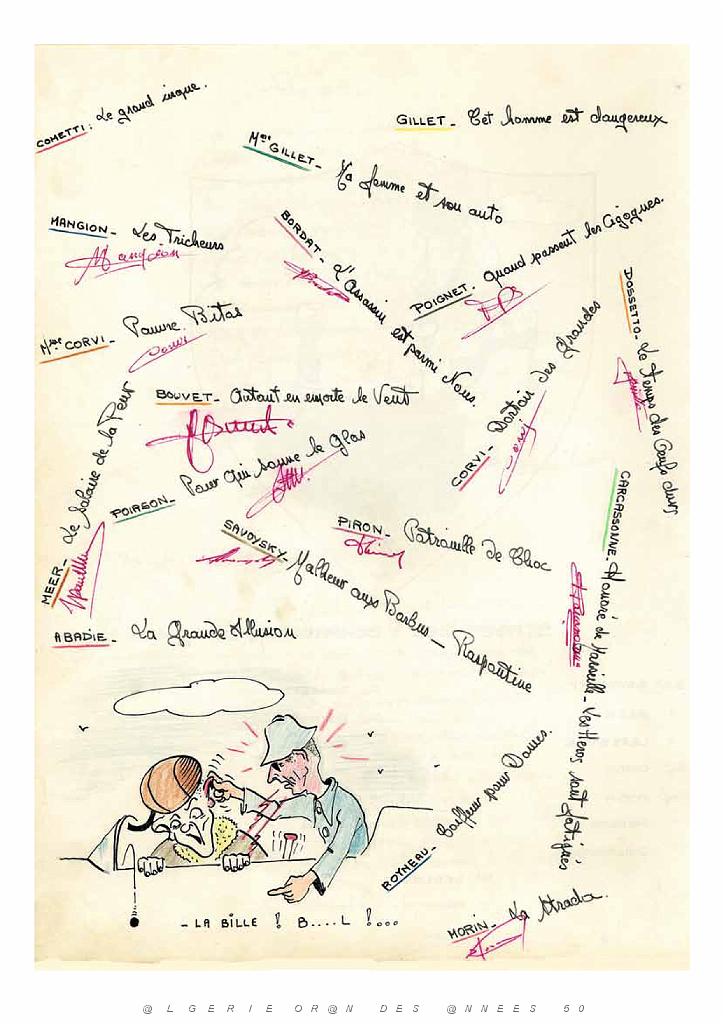 COMETTI : Le grand cirque.
GILLET - Cet homme est dangereux
Mme GILLET - Ma femme et son auto
MANGION - Les Tricheurs
BORDAT - L'Assassin est parmi Nous.
POIGNET - Quand passent les Cigognes.
DOSSETTO - Le temps des Oeufs durs
Mme CORVI - Pauvre Bitos
BOUVET - Autant en emporte le Vent
CORVI - Dortoir des grandes
MEER - Le Salaire de la Peur
POIRSON - Pour qui sonne le Glas
CARCASSONNE - Honoré de Marseille - Les Héros sont fatigués
SAVOYSKY - Malheur aux Barbus - Raspoutine
PIRON - Patrouille de Choc
ABADIE - La Grande Illusion
ROYNEAU - Coiffeur pour Dames.
- LA BILLE ! B....L !...
MORIN - La Strada.
@LGERIE OR@N DES @NNEES 50